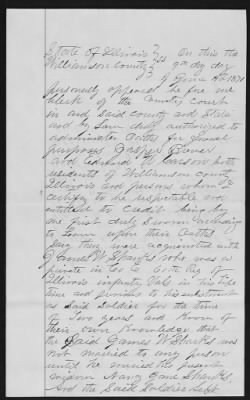 State of Illinois } On this the
Williamson County } ss 9th day
of June AD 1870
personally appeared before me
Clerk of the County court
in and said county and State
and by Law duly authorized to
administer Oaths for
purposes Jasper
and Edmund W both
residents of Williamson county
Illinois and persons whom I
certify to be respectable and
entitled to credit being by
me first duly sworn according
to Law upon their Oaths
Say they were acquainted with
James W Sharks who was a
private in Co G Regt of
Illinois infantry Vols in his life
time and previous to his enlistment
as said soldier for the term
of Two years and know of
their own Knowledge that
the said James W Sharks was
not married to any person
until he married the present
Nancy Jane Sharks
And the Said Soldier left